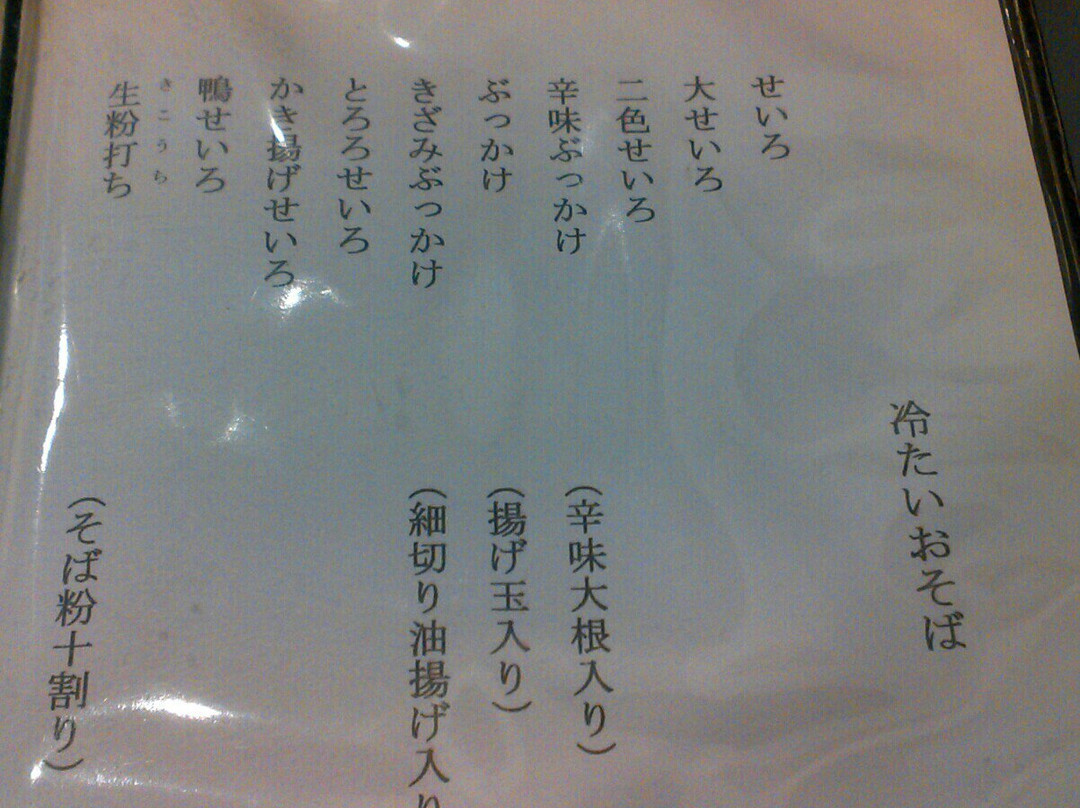 冷たいおそば
せいろ
大せいろ
二色せいろ
辛味ぶっかけ
（辛味大根入り）
ぶっかけ
（揚げ玉入り）
きざみぶっかけ
（細切り油揚げ入り
とろろせいろ
かき揚げせいろ
鴨せいろ
きこうち
生粉打ち
（そば粉十割り）